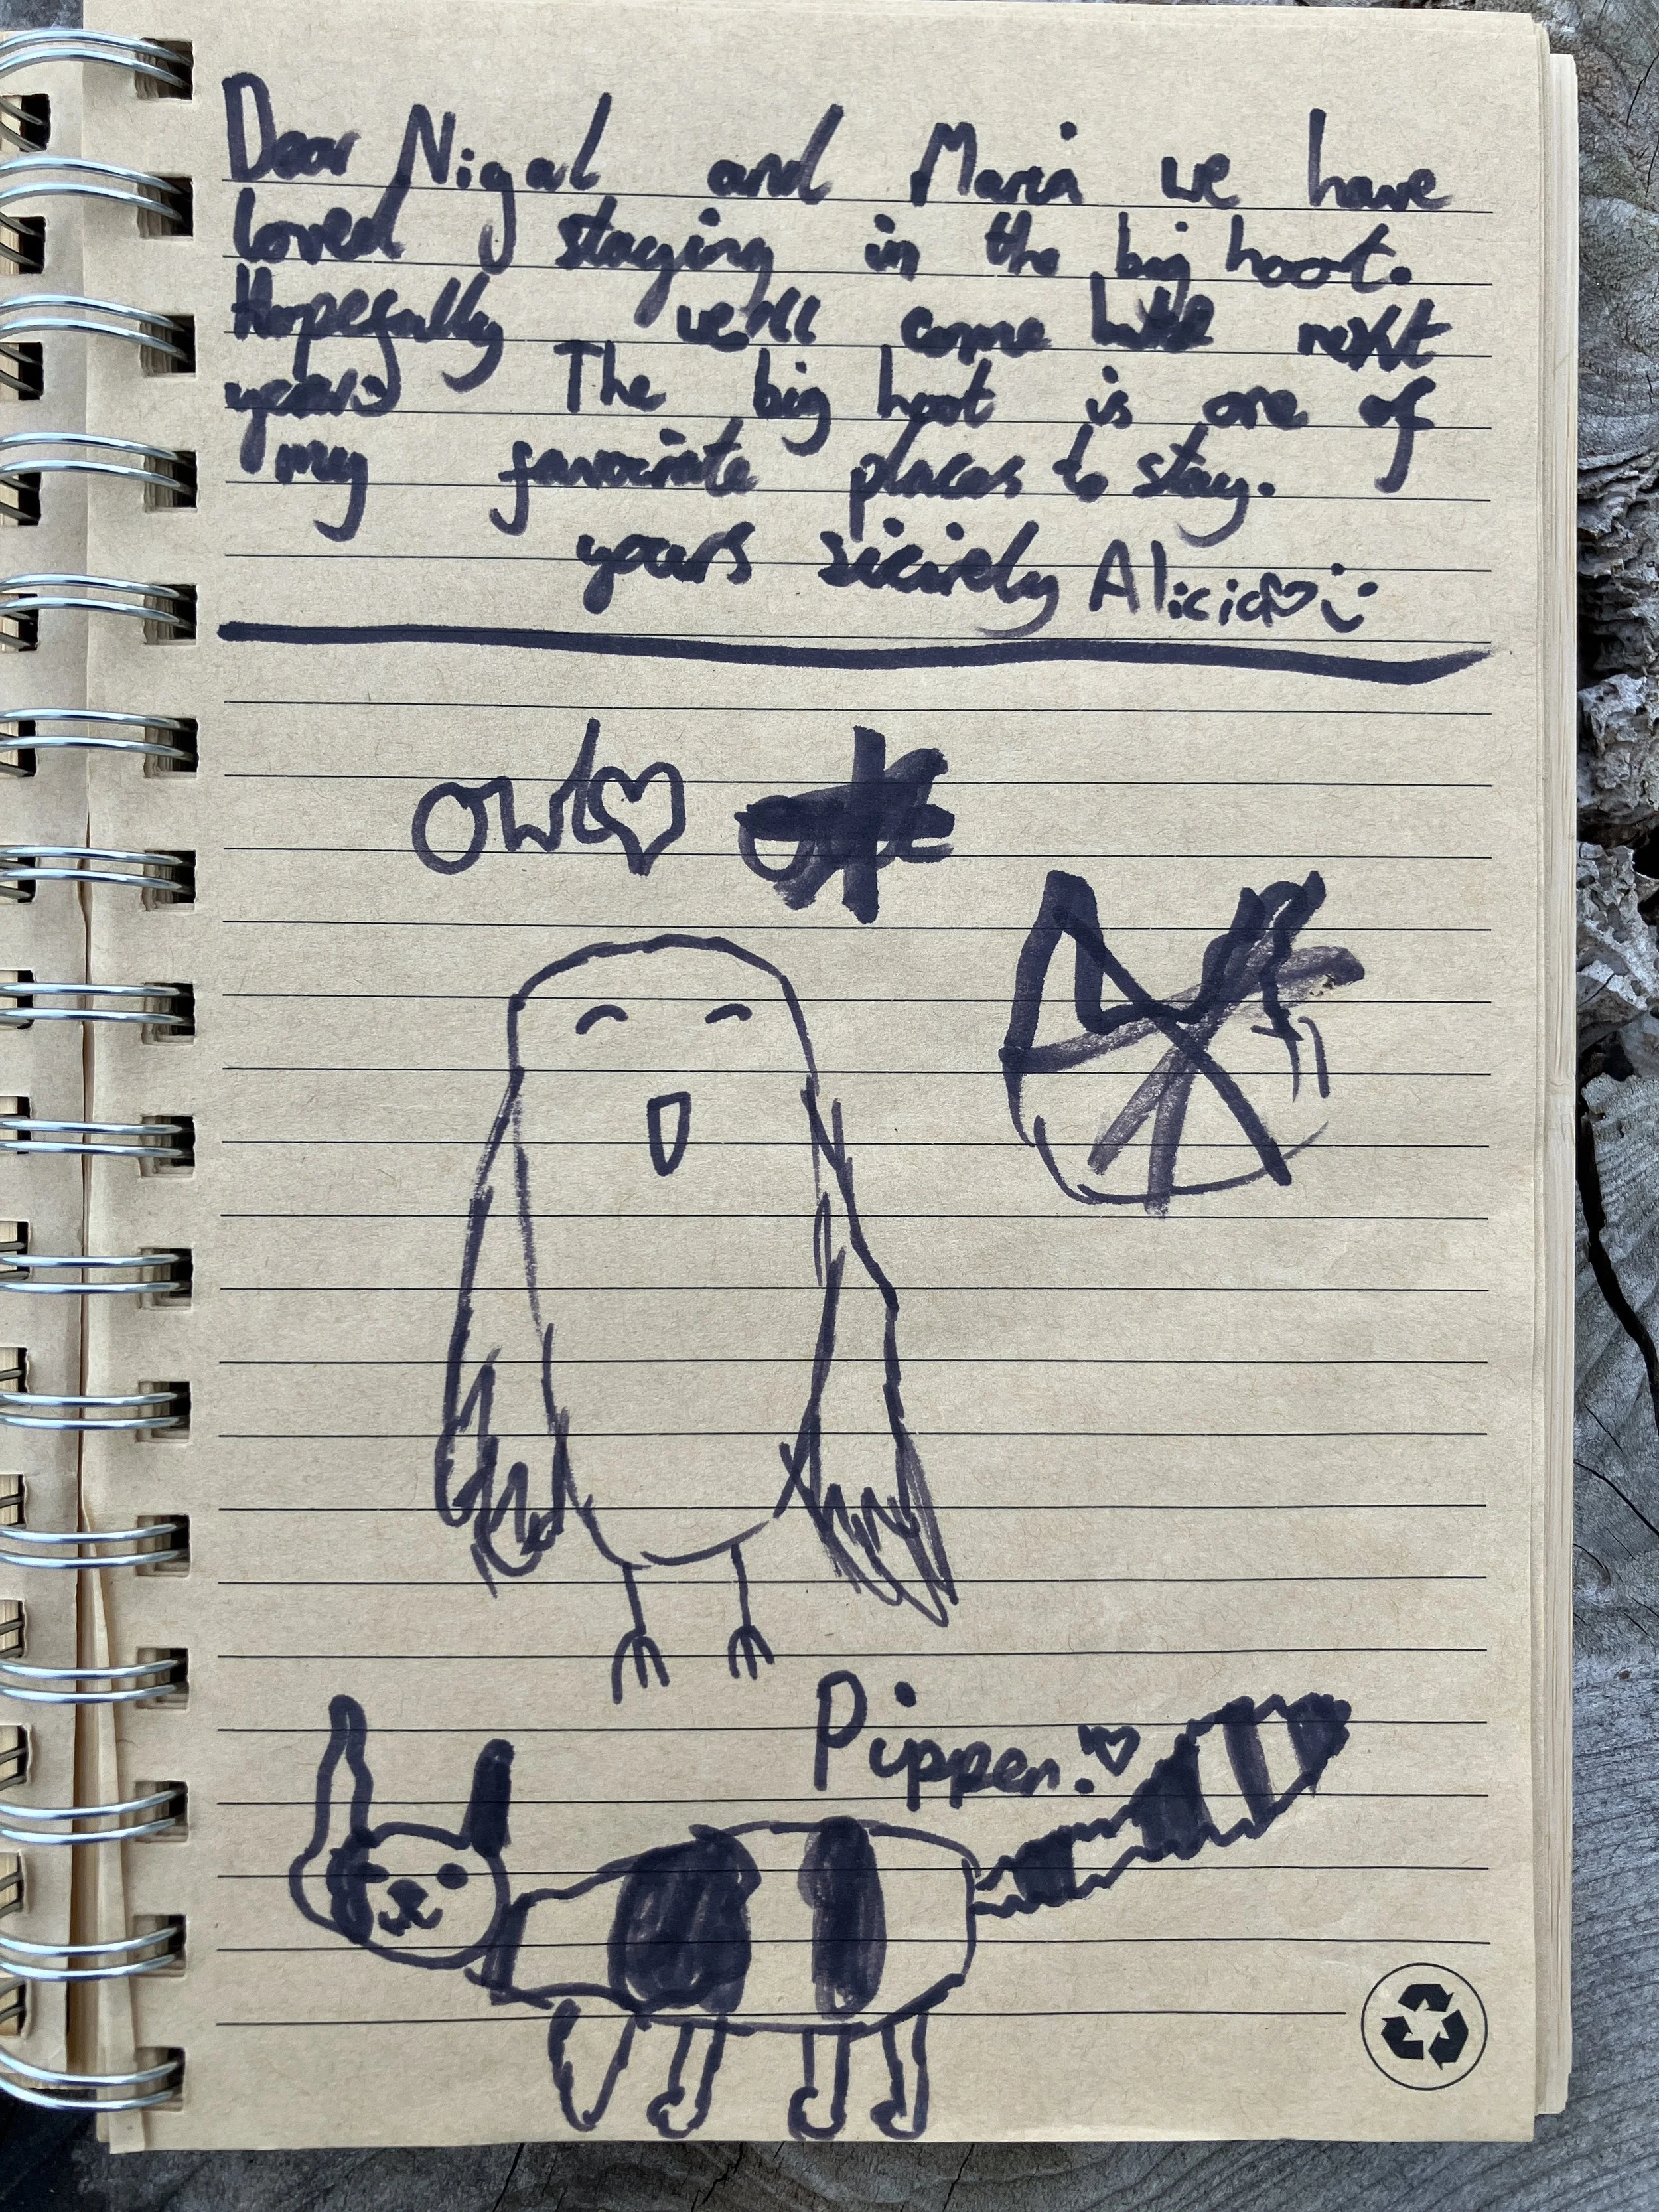 Dear Nigal and Maria we have
loved staying in the big hoot.
Hopefully we'll come next
years The big hoot is one of
my favourite places to stay.
yours sicirely Alicia
owl
Pippen.